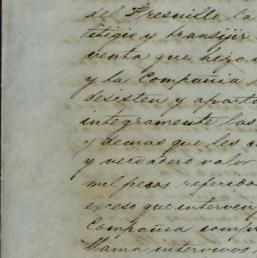 del Fresville la
litigio y transijir
venta que hizo
y la Compañia
desisten y aparta
integramente las
y demas que les c
y verdadero valor
mil pesos referido
exceso que interven
Compañia comp
llama intervivos